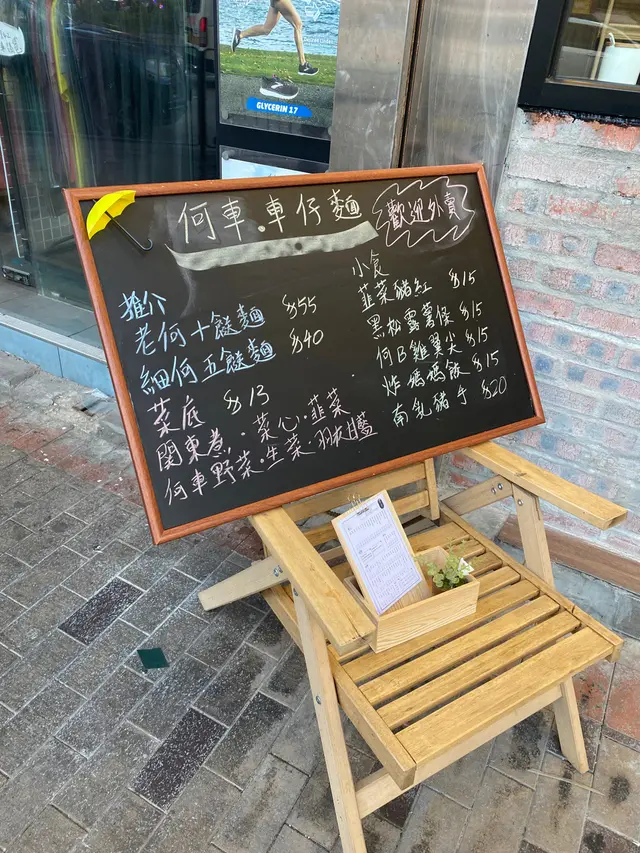 GLYCERIN 17
何車.車仔麵
歡迎外賣
推介
老何十餸麵 $55
細何五餸麵 $40
菜底 $13
関東煮.菜心.韮菜
何車野菜.生菜.羽衣甘藍
小食
韮菜豬紅 $15
黑松露薯條 $15
何B雞翼尖 $15
炸媽媽飯 $15
南乳豬手 $20